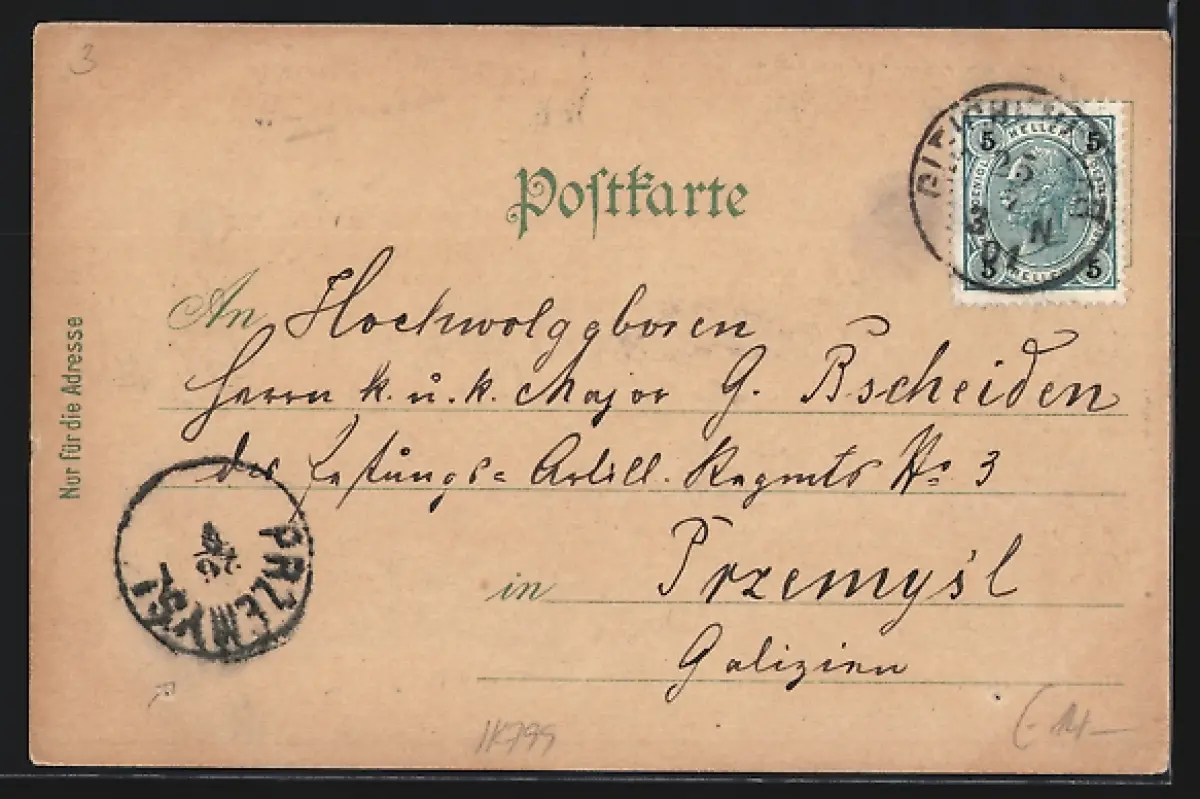 3
Postkarte
5 HELLER 5
5 HELLER 5
25
3 N
01
An Hochwolgeboren
Herrn k. u. k. Major G. Bscheiden
des Festungs= Artill. Regmts No 3
in Przemyśl
Galizien
Nur für die Adresse
PRZEMYSL
26
HK799
14-